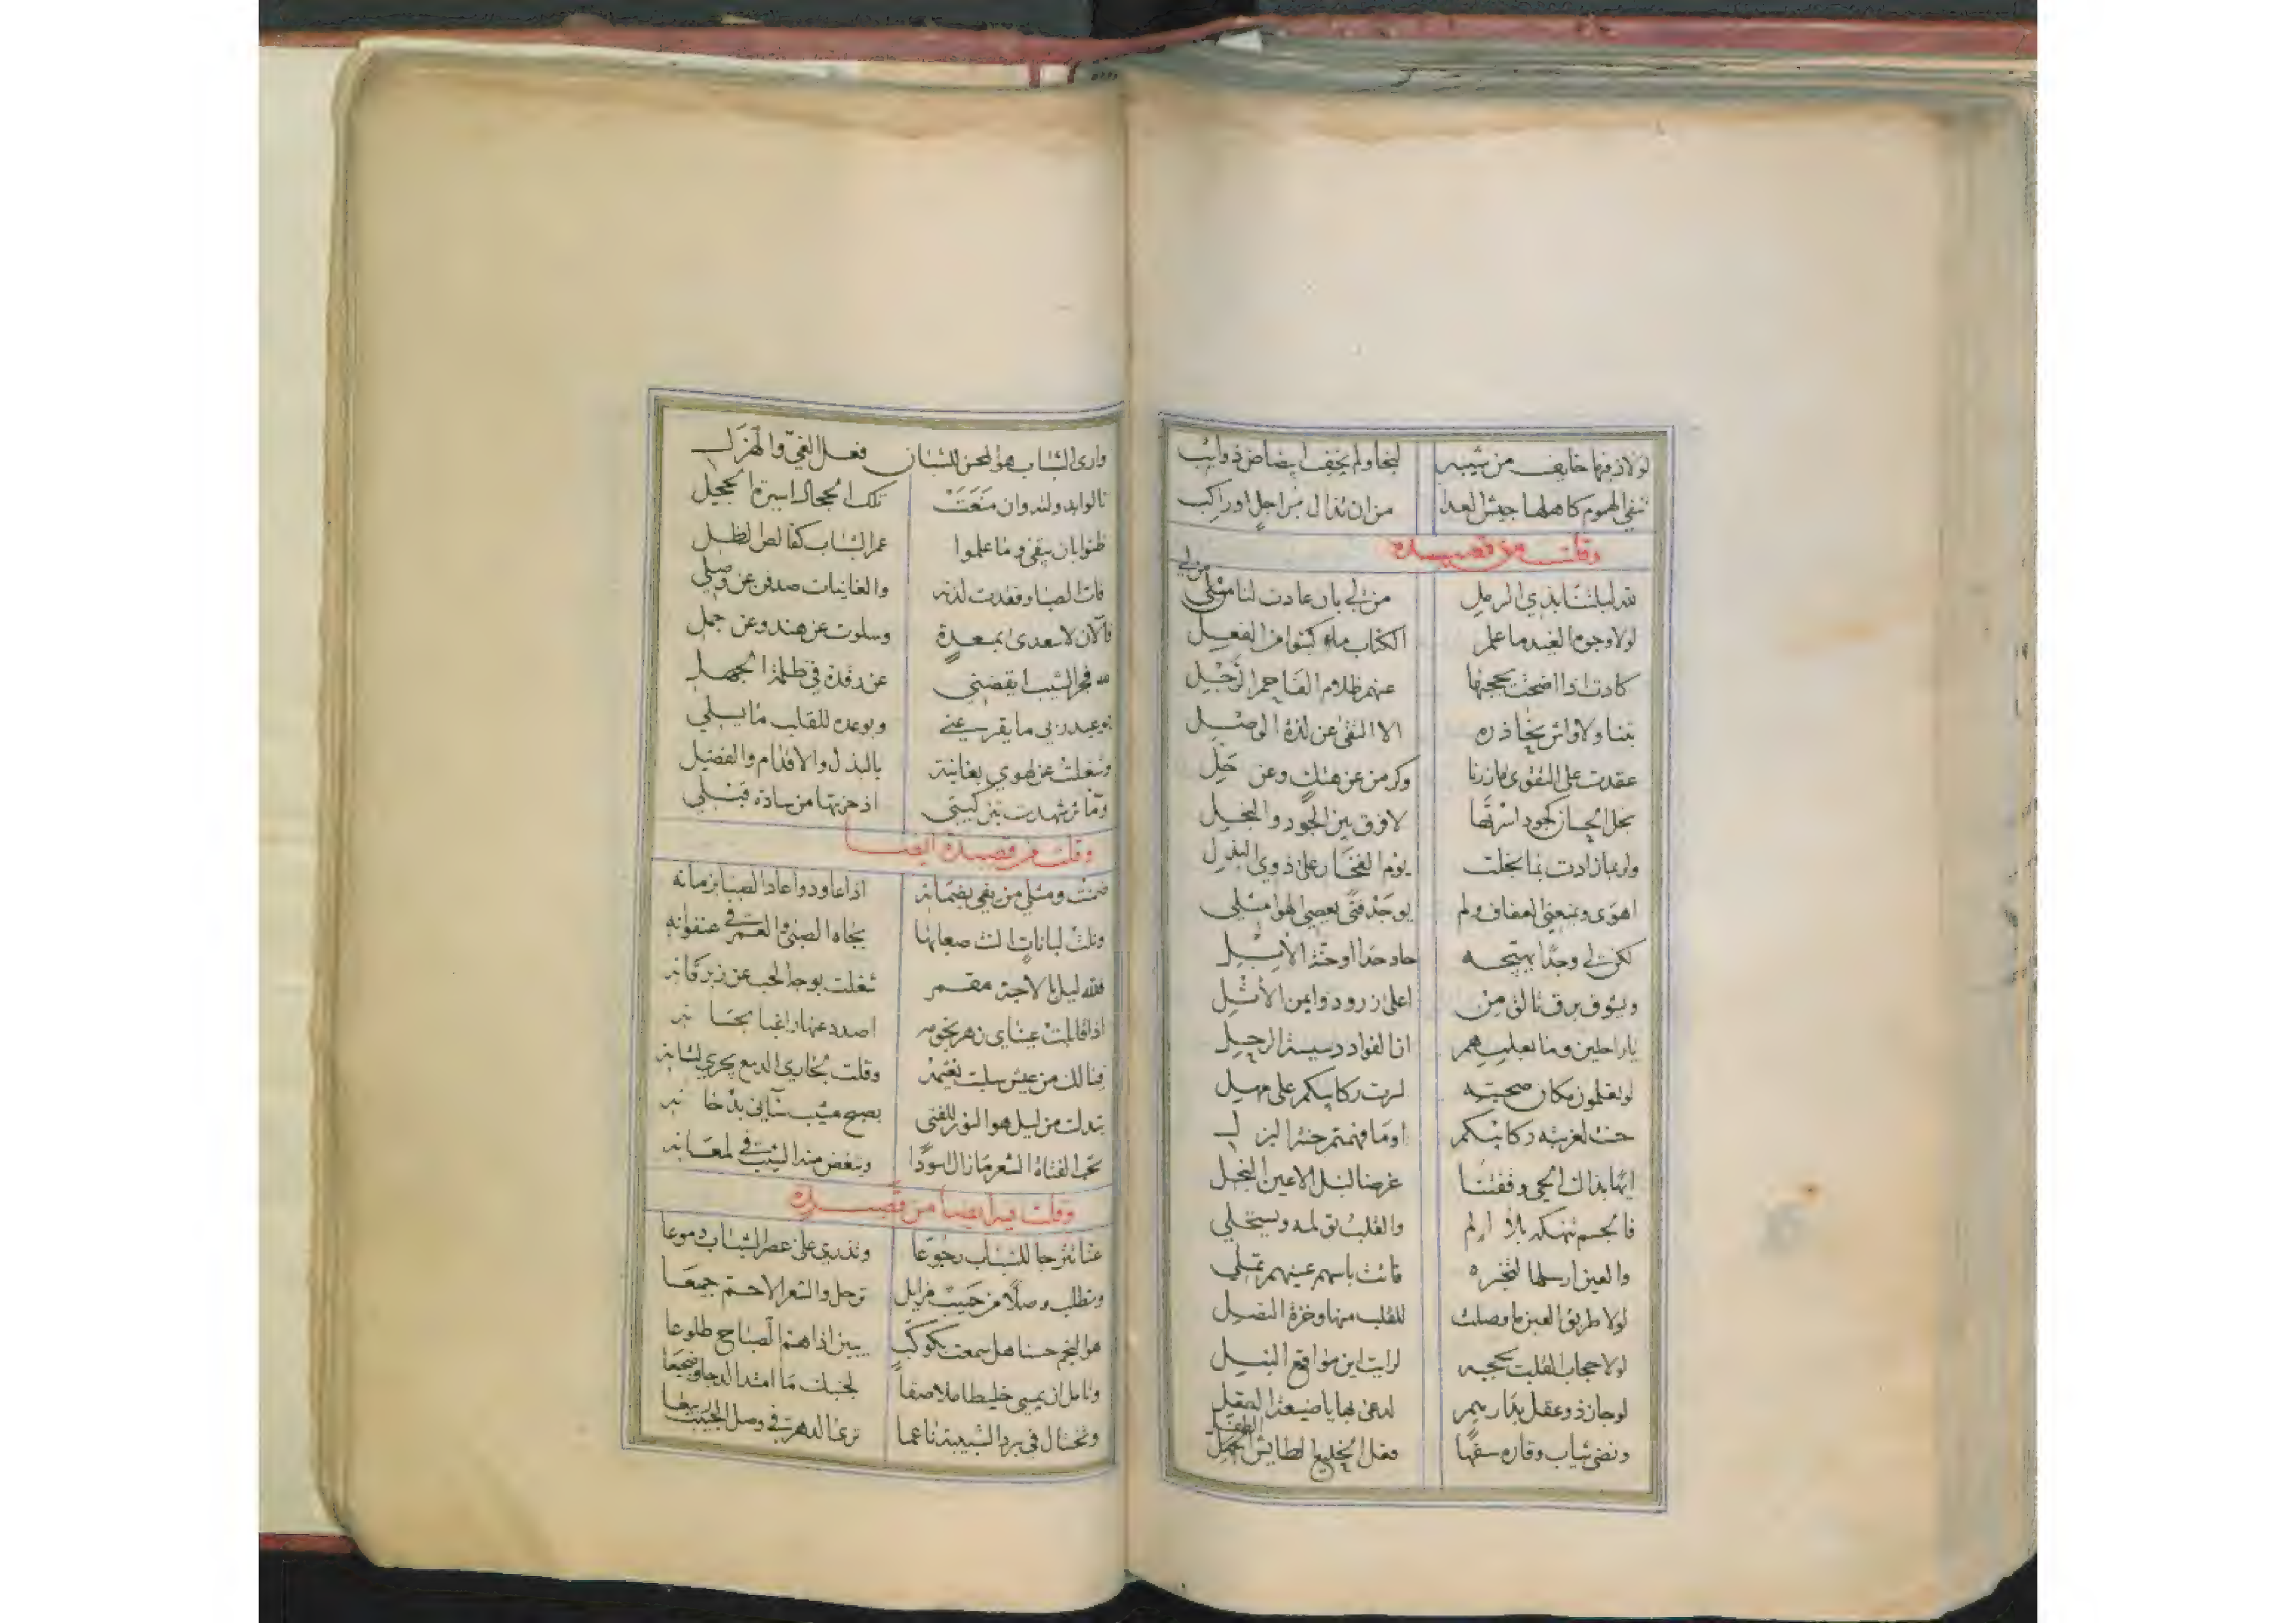 لولاذ فيها خايف من شيبه لنجا ولم يخف ابيضاض ذوايب
تنفي الهموم كاهلها جيش العدا من ان تذال براجل او راكب
وقلت من قصيدة
لله ليلتنا بذي الرمل من لي بان عادت لنا من لي
لولا وجوه الغيد ما علم الكتاب ماء كتبوا من الفعل
كادت اذا اضحت تحجبها عنهم ظلام الفاحم الرجل
بتنا ولا واش نحاذره الا التقى عن لذة الوصل
عقدت على التقوى مازرنا وكم من عن هنك وعن حل
بخل الحسان كجود اسرتها لا فرق بين الجود والبخل
ولربما زادت بما بخلت يوم الفخار على ذوي البذل
اهوى ويمنعني العفاف ولم يوجد فتى يعصي الهوا مثلي
لكن لي وجدا يهيجه حاد حدا او حنة الابل
وبشوف برق تالق من اعلى زرود وايمن الاثل
يا راحلين وما بعلمهم ان الفواد دسيسة الرحل
لو تعلمون مكان صحبته لسرت ركايبكم على مهل
حنت لغربته ركايبكم اوما فهمتم حنة البزل
ايها بذاك الحي وقفتنا غرضا لنبل الاعين النجل
فالجسم تنهكه بلا الم والقلب تولمه ويستحلي
والعين ارسلها لتخبره فاتت باسهم عينهم تملي
لولا طريق العين ما وصلت للقلب منها وخزة النصل
لولا حجاب القلب تحجبه لرايت اين مواقع النبل
لو جاز ذو عقل بدارهم لدعى بها يا ضيعة العقل
ونضى ثياب وقاره سفها فعل الخليع الطايش
وارى الشباب هو المحسن للشبان فعل الغي والهزل
قالوا بدولته وان منعت تلك الحجال اسيرة الحجل
ظنوا بان يبقى وما علموا عمر الشباب كقالص الظل
فات الصبا وفقدت لذته والغانيات صدفن عن وصلي
فالآن لا سعدى بمسعدة وسلوت عن هند وعن جمل
فجر الشيب ايقضني عن رقدة في ظلمة الجهل
بوعيد ربي ما يقر عيني وبوعده للقلب ما يسلي
وشغلت عن لهوي بغانية بالبذل والاقدام والفضل
ومآثر شهدت بتزكيتي اذ حزتها من سادة قبلي
وقلت من قصيدة ايضا
ضمنت ومثلي من يفي بضمانه اذا عاودوا عاد الصبا بزمانه
ونلت لبانات الث صعابها بجاه الصبى والعمر في عنفوانه
فلله ليل بالاحبة مقمر شغلت بوجه الحب عن زبرقانه
اذا قابلت عيناي زهر نجومه اصدد عنها راغبا بحسانه
فيا لك من عيش سلبت نعيمه وقلت لجاري الدمع يجري لشانه
تبدلت من ليل هو النور للفتى بصبح مشيب سآني بدخانه
تحب الفتاة الشعر ما زال اسودا وتبغض منه الشيب في لمعانه
وقلت فيه ايضا من قصيدة
عشا تترجا للشباب رجوعا وتذري على عصر الشباب دموعا
وتطلب وصلا من حبيب مزايل ترحل والشعر الاحم جميعا
هو النجم حسنا هل سمعت بكوكب يبين اذا هم الصباح طلوعا
وتامل ان يمسي خليطا ملاصقا لجنبك ما امتد الدجا وضجيعا
وتختال في برد الشبيبة ناعما ترعى الدهر في وصل الحبيب ربيعا